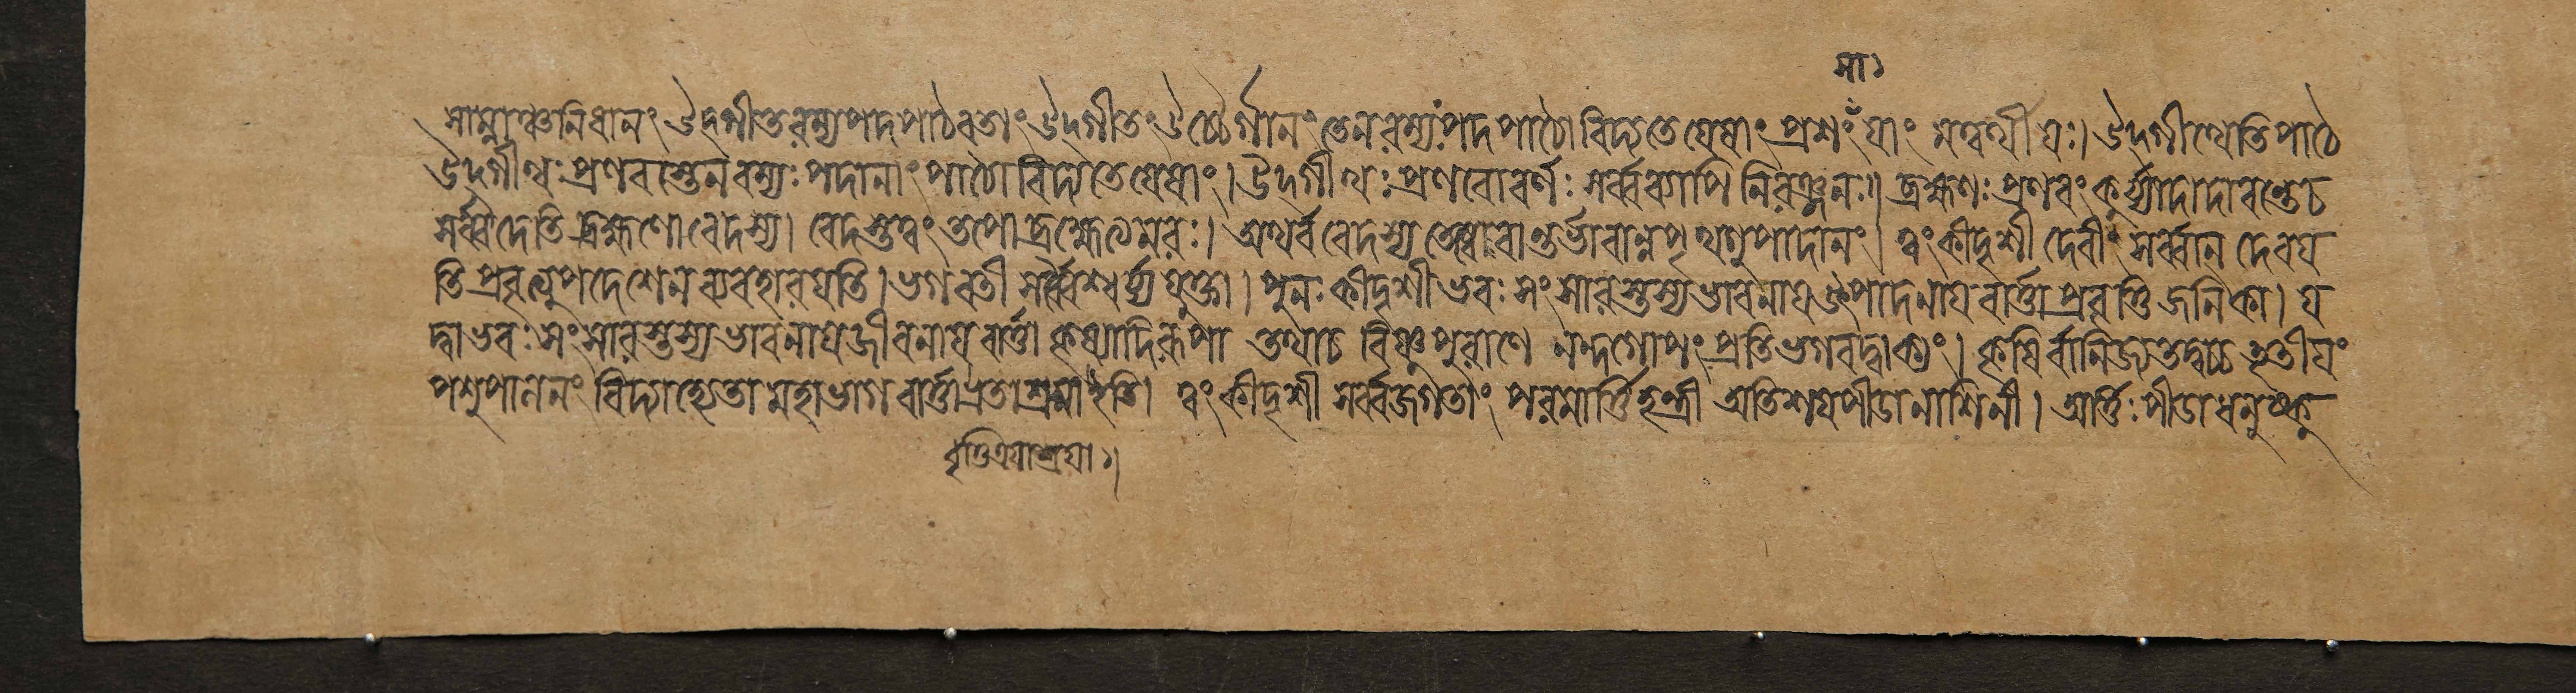 সা১
সাম্নাঞ্চনিধানং উদ্গীতরম্যপদপাঠবতাং উদ্গীতং উচ্চৈর্গানং তেনরম্যংপদপাঠো বিদ্যতে যেষাং প্রশংযাং মত্বর্থীযঃ। উদ্গীথেতিপাঠে
উদ্গীথঃ প্রণবস্তেনরম্যঃ পদানাং পাঠো বিদ্যতে যেষাং। উদ্গীথঃ প্রণবোবর্ণঃ সর্ব্বব্যাপি নিরঞ্জনঃ॥ ব্রহ্মণঃ প্রণবং কুর্য্যাদাদাবন্তেচ
সর্ব্বদেতি ব্রহ্মণো বেদস্য। বেদস্তত্বং তপো ব্রহ্মেত্যমরঃ। অথর্ব বেদস্য বান্তর্ভাবান্নপৃথগুপাদানং। ত্বং কীদৃশী দেবী সর্ব্বান দেবয
তি প্রবৃত্যুপদেশেন ব্যবহারযতি। ভগবতী সর্ব্বৈশ্বর্য্য যুক্তা। পুনঃ কীদৃশী ভবঃ সংসারস্তস্যভাবনায উৎপাদনায বার্ত্তা প্রবৃত্তি জনিকা। য
দ্বা ভবঃ সংসারস্তস্যভাবনাযজীবনায বার্ত্তা কৃষ্যাদিরূপা তথাচ বিষ্ণুপুরাণে নন্দগোপং প্রতিভগবদ্বাক্যং। কৃষির্বানিজ্যতদ্বচ্চ তৃতীযং
পশুপালনং বিদ্যাহ্যেতা মহাভাগ বার্ত্তা ইতি। ত্বং কীদৃশী সর্ব্বজগতাং পরমার্ত্তিহন্ত্রী অতিশযপীডানাশিনী। আর্ত্তিঃ পীডাধনুষ্কো
বৃত্তিত্রযাশ্রযা১।